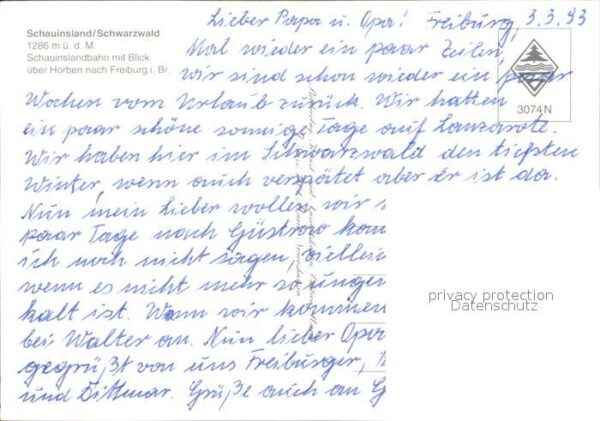 Schauinsland/Schwarzwald
1286 m ü. d. M.
Schauinslandbahn mit Blick
über Horben nach Freiburg i. Br.
Lieber Papa u. Opa! Freiburg, 3.3.93
Mal wieder ein paar Zeilen,
wir sind schon wieder ein paar
Wochen vom Urlaub zurück. Wir hatten
ein paar schöne sonnige Tage auf Lanzarote.
Wir haben hier im Schwarzwald den tiefsten
Winter, wenn auch verspätet aber Er ist da.
Nun mein Lieber wollen wir
paar Tage nach Güstrow kom
ich noch nicht sagen, vielleic
wenn es nicht mehr so unge
kalt ist. Wann wir kommen
bei Walter an. Nun lieber Opa
gegrüßt von uns Freiburger,
und Dittmar. Grüße auch an G
3074 N
privacy protection
Datenschutz